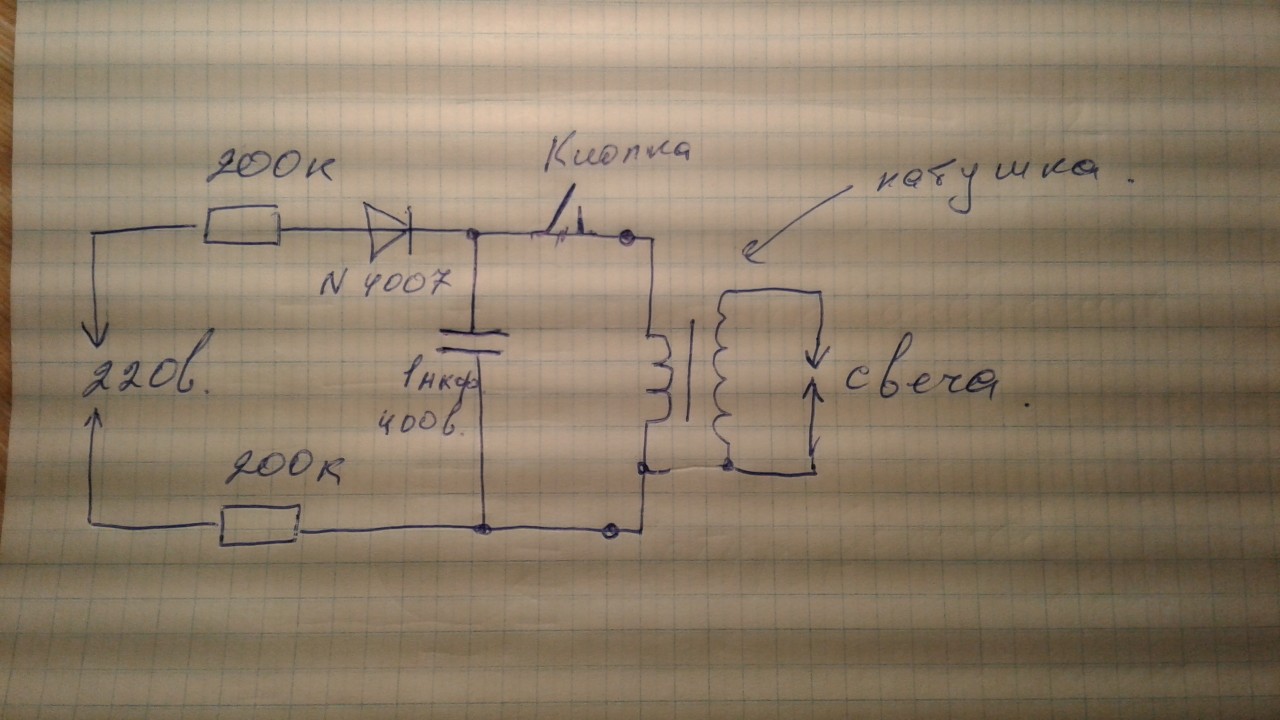 200к
Кнопка
катушка.
N 4007
220в.
1мкф
400в.
свеча.
200к